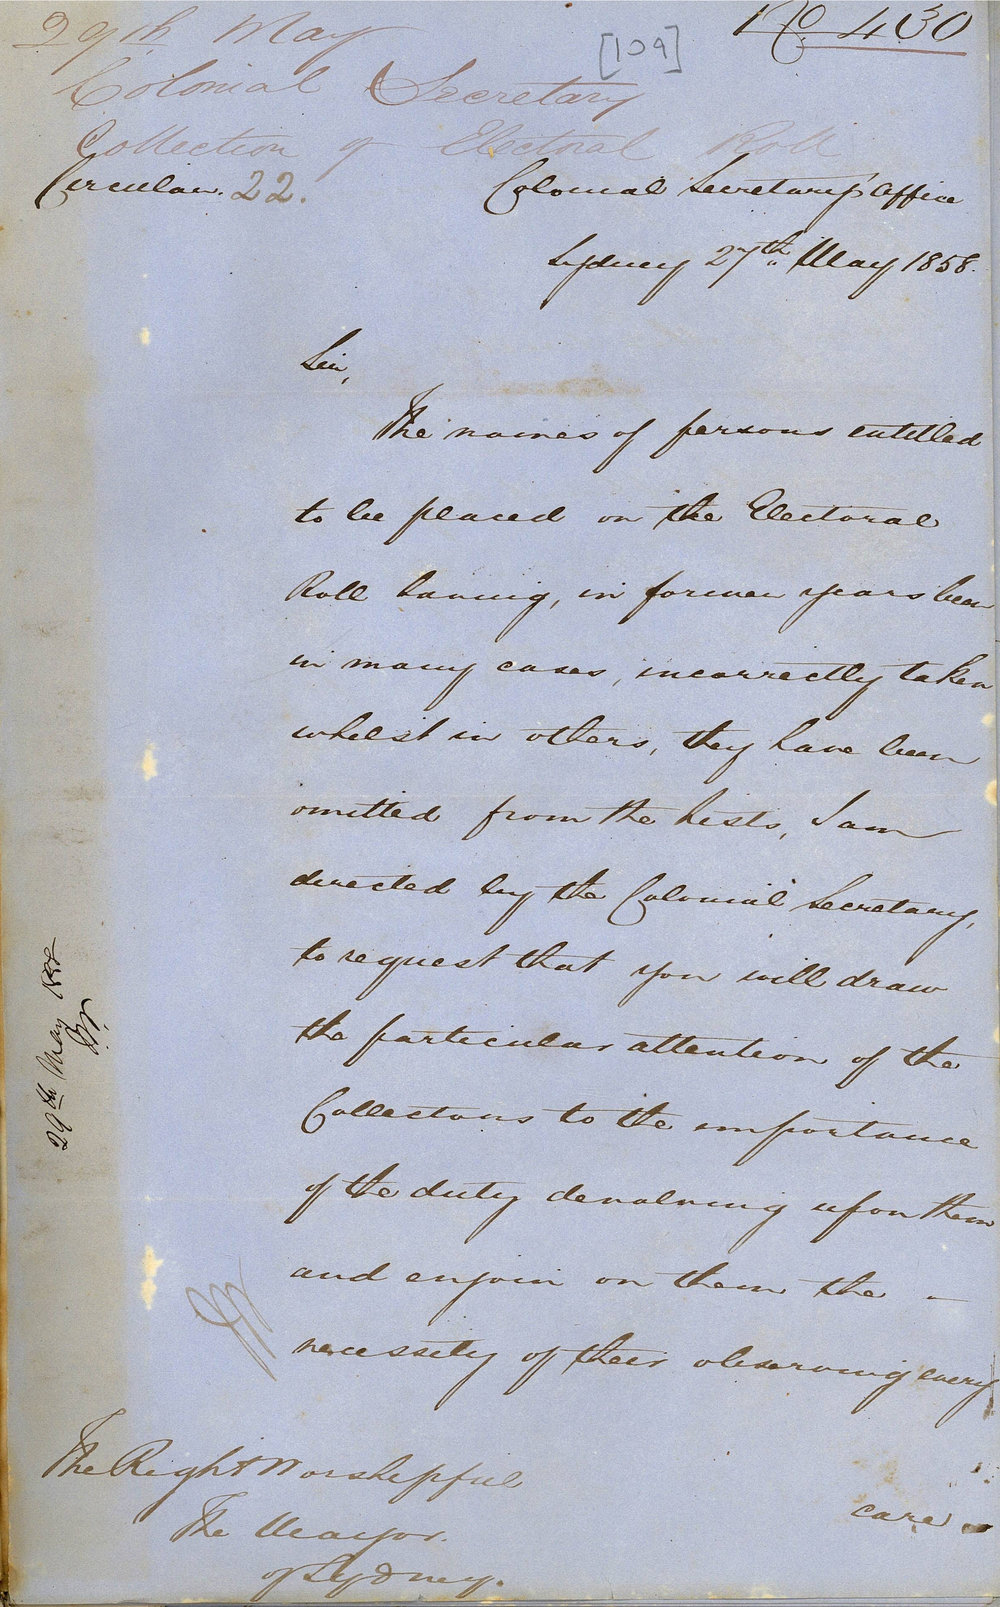 29th May
No. 430
[109]
Colonial Secretary
Collection of Electoral Roll
Circular. 22.
Colonial Secretary's Office
Sydney 27th May 1858.
Sir,
The names of persons entitled
to be placed on the Electoral
Roll having, in former years been
in many cases, incorrectly taken
whilst in others, they have been
omitted from the Lists, I am
directed by the Colonial Secretary,
to request that you will draw
the particular attention of the
Collectors to the importance
of the duty devolving upon them
and enjoin on them the -
necessity of their observing every
care
The Right Worshipful
The Mayor.
of Sydney.
29th May 1858